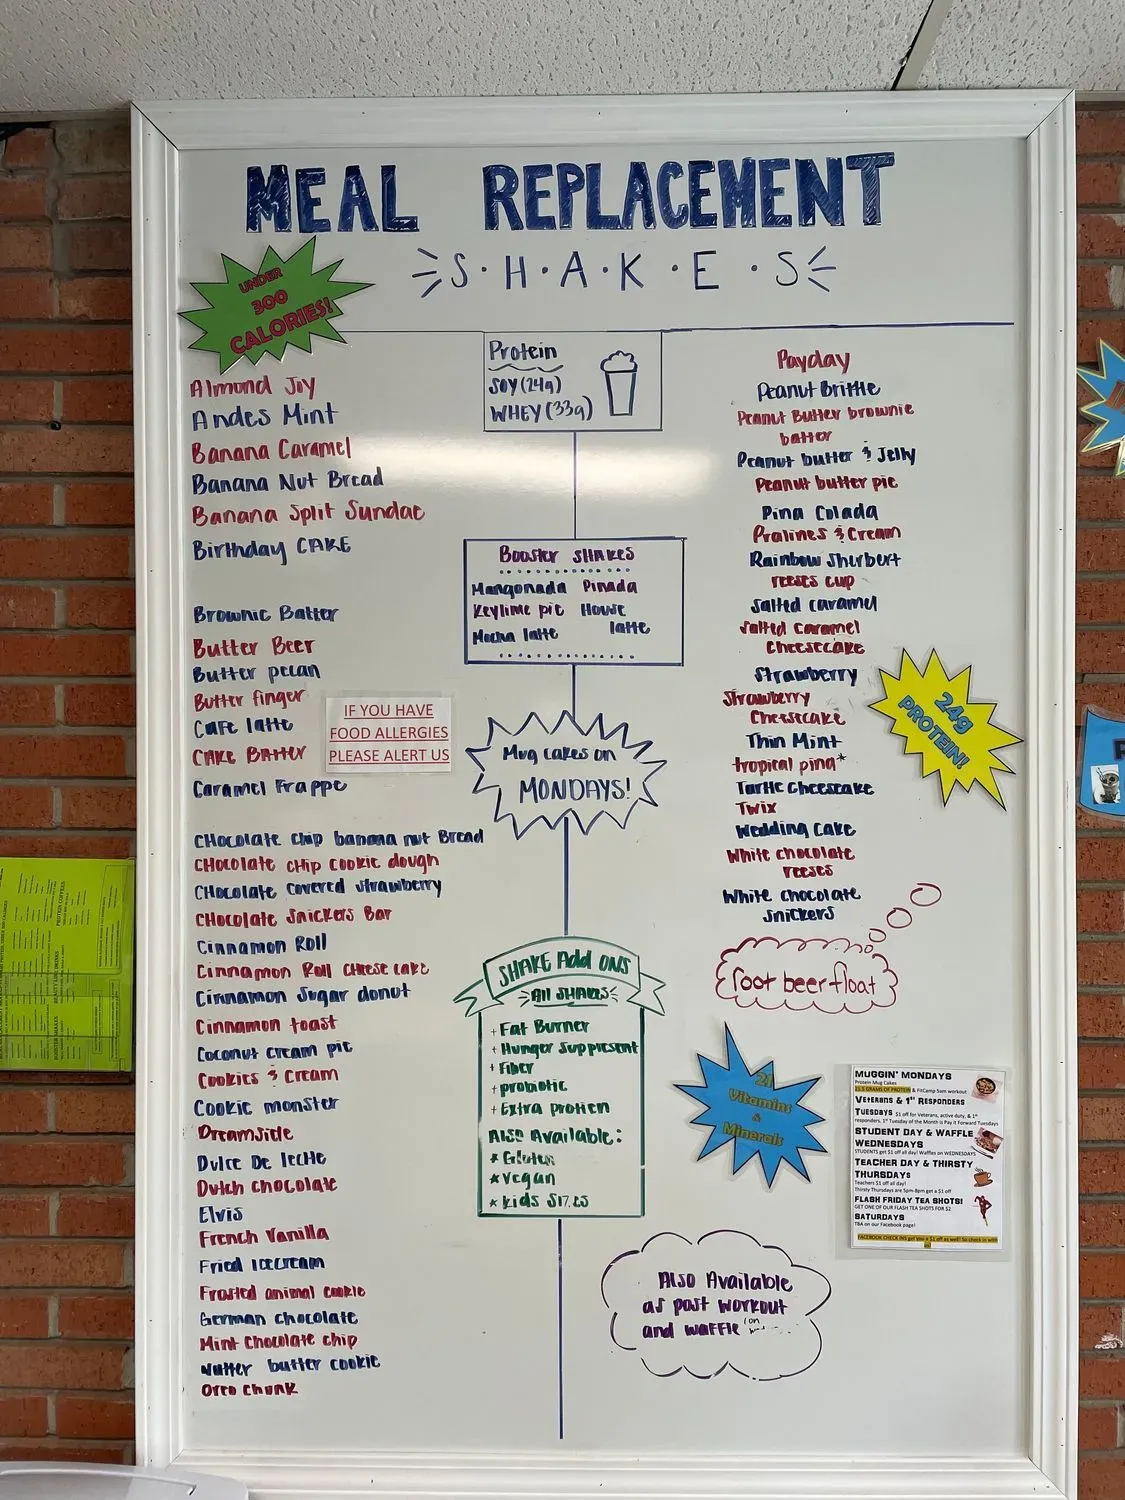 MEAL REPLACEMENT
S·H·A·K·E·S
UNDER
300
CALORIES!
Almond Joy
Andes Mint
Banana Caramel
Banana Nut Bread
Banana Split Sundae
Birthday CAKE
Brownie Batter
Butter Beer
Butter pecan
Butter finger
Cafe latte
CAKE Batter
Caramel Frappe
CHocolate chip banana nut Bread
CHocolate CHip cookie dough
CHocolate covered strawberry
CHocolate Snickers Bar
Cinnamon Roll
Cinnamon Roll cheese cake
Cinnamon Sugar donut
Cinnamon toast
Coconut cream pie
Cookies & Cream
Cookie monster
Dreamside
Dulce De lecHe
Dutch chocolate
Elvis
French Vanilla
Fried Icecream
Frosted animal cookie
German chocolate
Mint Chocolate chip
Nutter butter cookie
Oreo chunk
IF YOU HAVE
FOOD ALLERGIES
PLEASE ALERT US
Protein
SOY (24g)
WHEY (33g)
Booster SHAKES
Mangonada Pinada
Keylime pie House
Mocha latte latte
Mug cakes on
MONDAYS!
SHAKE Add ONS
All SHAKES
+ Fat Burner
+ Hunger Suppresent
+ Fiber
+ probiotic
+ Extra protien
Also Available:
* Gluten
* vegan
* kids Sizes
Payday
Peanut Brittle
Peanut Butter brownie
batter
Peanut butter & Jelly
Peanut butter pie
Pina Colada
Pralines & Cream
Rainbow Sherbert
reeses cup
Salted caramel
Salted caramel
Cheesecake
Strawberry
Strawberry
Cheesecake
Thin Mint
tropical pina*
Turtle Cheesecake
Twix
Wedding Cake
White chocolate
reeses
White chocolate
snickers
24g
PROTEIN!
root beer float
21
Vitamins
&
Minerals
MUGGIN' MONDAYS
Protein Mug Cakes
& FitCamp 5am workout
VETERANS & 1ST RESPONDERS
TUESDAYS $1 off for Veterans, active duty, & 1st
responders. 1st Tuesday of the Month is Pay it Forward Tuesdays
STUDENT DAY & WAFFLE
WEDNESDAYS
STUDENTS get $1 off all day! Waffles on WEDNESDAYS
TEACHER DAY & THIRSTY
THURSDAYS
Teachers $1 off all day!
Thirsty Thursdays are 5pm-8pm get a $1 off
FLASH FRIDAY TEA SHOTS!
GET ONE OF OUR FLASH TEA SHOTS FOR $2
SATURDAYS
TBA on our Facebook page!
FACEBOOK CHECK INS get you a $1 off as well! So check in with
us!
Also Available
as post workout
and waffle (on